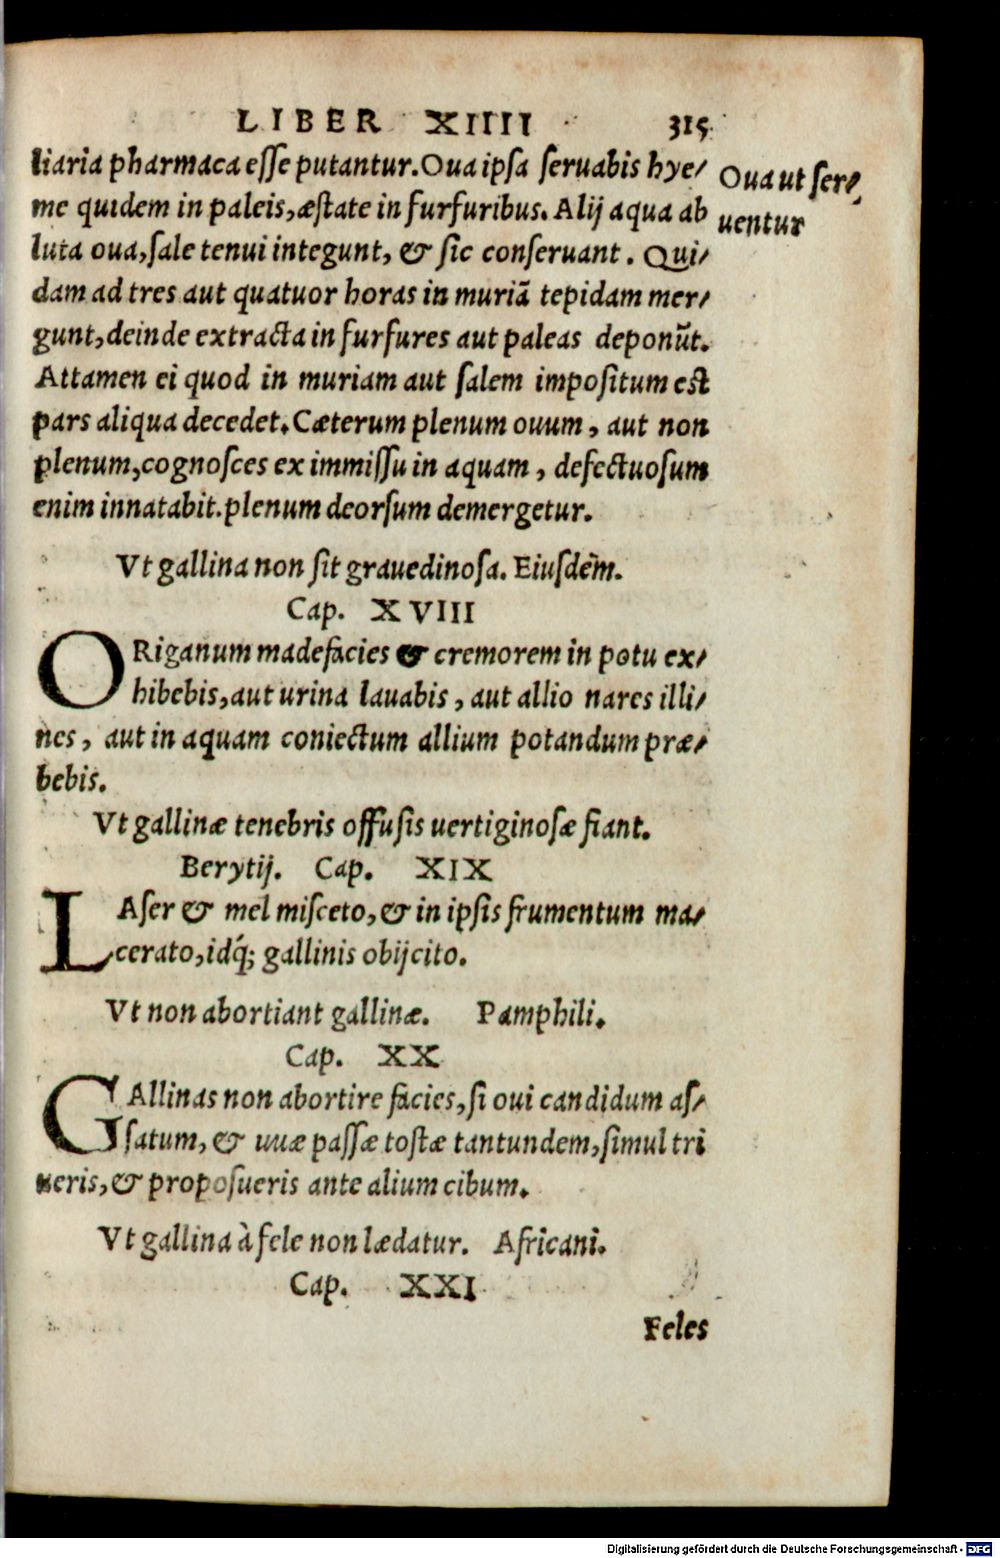 LIBER XIIII 315
liaria pharmaca esse putantur. Oua ipsa seruabis hye/
me quidem in paleis, æstate in furfuribus. Alij aqua ab
luta oua, sale tenui integunt, & sic conseruant. Qui/
dam ad tres aut quatuor horas in muriã tepidam mer/
gunt, deinde extracta in furfures aut paleas deponũt.
Attamen ei quod in muriam aut salem impositum est
pars aliqua decedet. Cæterum plenum ouum, aut non
plenum, cognosces ex immissu in aquam, defectuosum
enim innatabit. plenum deorsum demergetur.
Oua ut ser/
uentur
Vt gallina non sit grauedinosa. Eiusdẽm.
Cap. XVIII
ORiganum madefacies & cremorem in potu ex/
hibebis, aut urina lauabis, aut allio nares illi/
nes, aut in aquam coniectum allium potandum præ/
bebis.
Vt gallinæ tenebris offusis uertiginosæ fiant.
Berytij. Cap. XIX
LAser & mel misceto, & in ipsis frumentum ma/
cerato, idq́; gallinis obijcito.
Vt non abortiant gallinæ. Pamphili.
Cap. XX
GAllinas non abortire facies, si oui candidum as/
satum, & uuæ passæ tostæ tantundem, simul tri
ueris, & proposueris ante alium cibum.
Vt gallina à fele non lædatur. Africani.
Cap. XXI
Feles
Digitalisierung gefördert durch die Deutsche Forschungsgemeinschaft - DFG